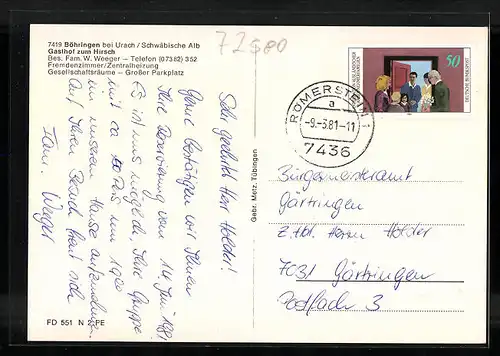 7419 Böhringen bei Urach / Schwäbische Alb
Gasthof zum Hirsch
Bes. Fam. W. Weeger – Telefon (07382) 352
Fremdenzimmer/Zentralheizung
Gesellschaftsräume – Großer Parkplatz
72580
Sehr geehrter Herr Holder!
Gerne bestätigen wir Ihnen
Ihre Reservierung vom 14. Juni 1981
Es ist uns möglich, Ihre Gruppe
mit ca Pers um 19.00
in unserem Hause aufzunehmen.
Auf Ihren Besuch freut sich
Fam. Weeger
FD 551 N PE
Gebr. Metz, Tübingen
RÖMERSTEIN 1
a
-9.-3.81-11
7436
50
DEUTSCHE BUNDESPOST
Bürgermeisteramt
Gärtringen
z. Hd. Herrn Holder
7031 Gärtringen
Postfach 3